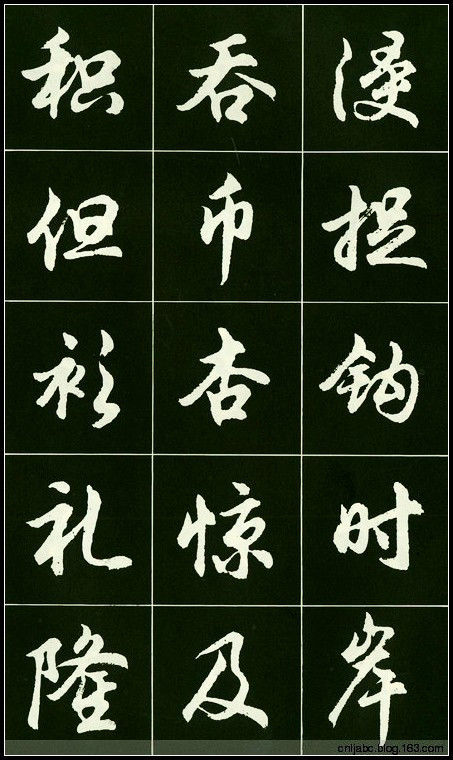 捉钩时岸
吞币杏惊及
积但衫礼隆
cnljabc.blog.163.com